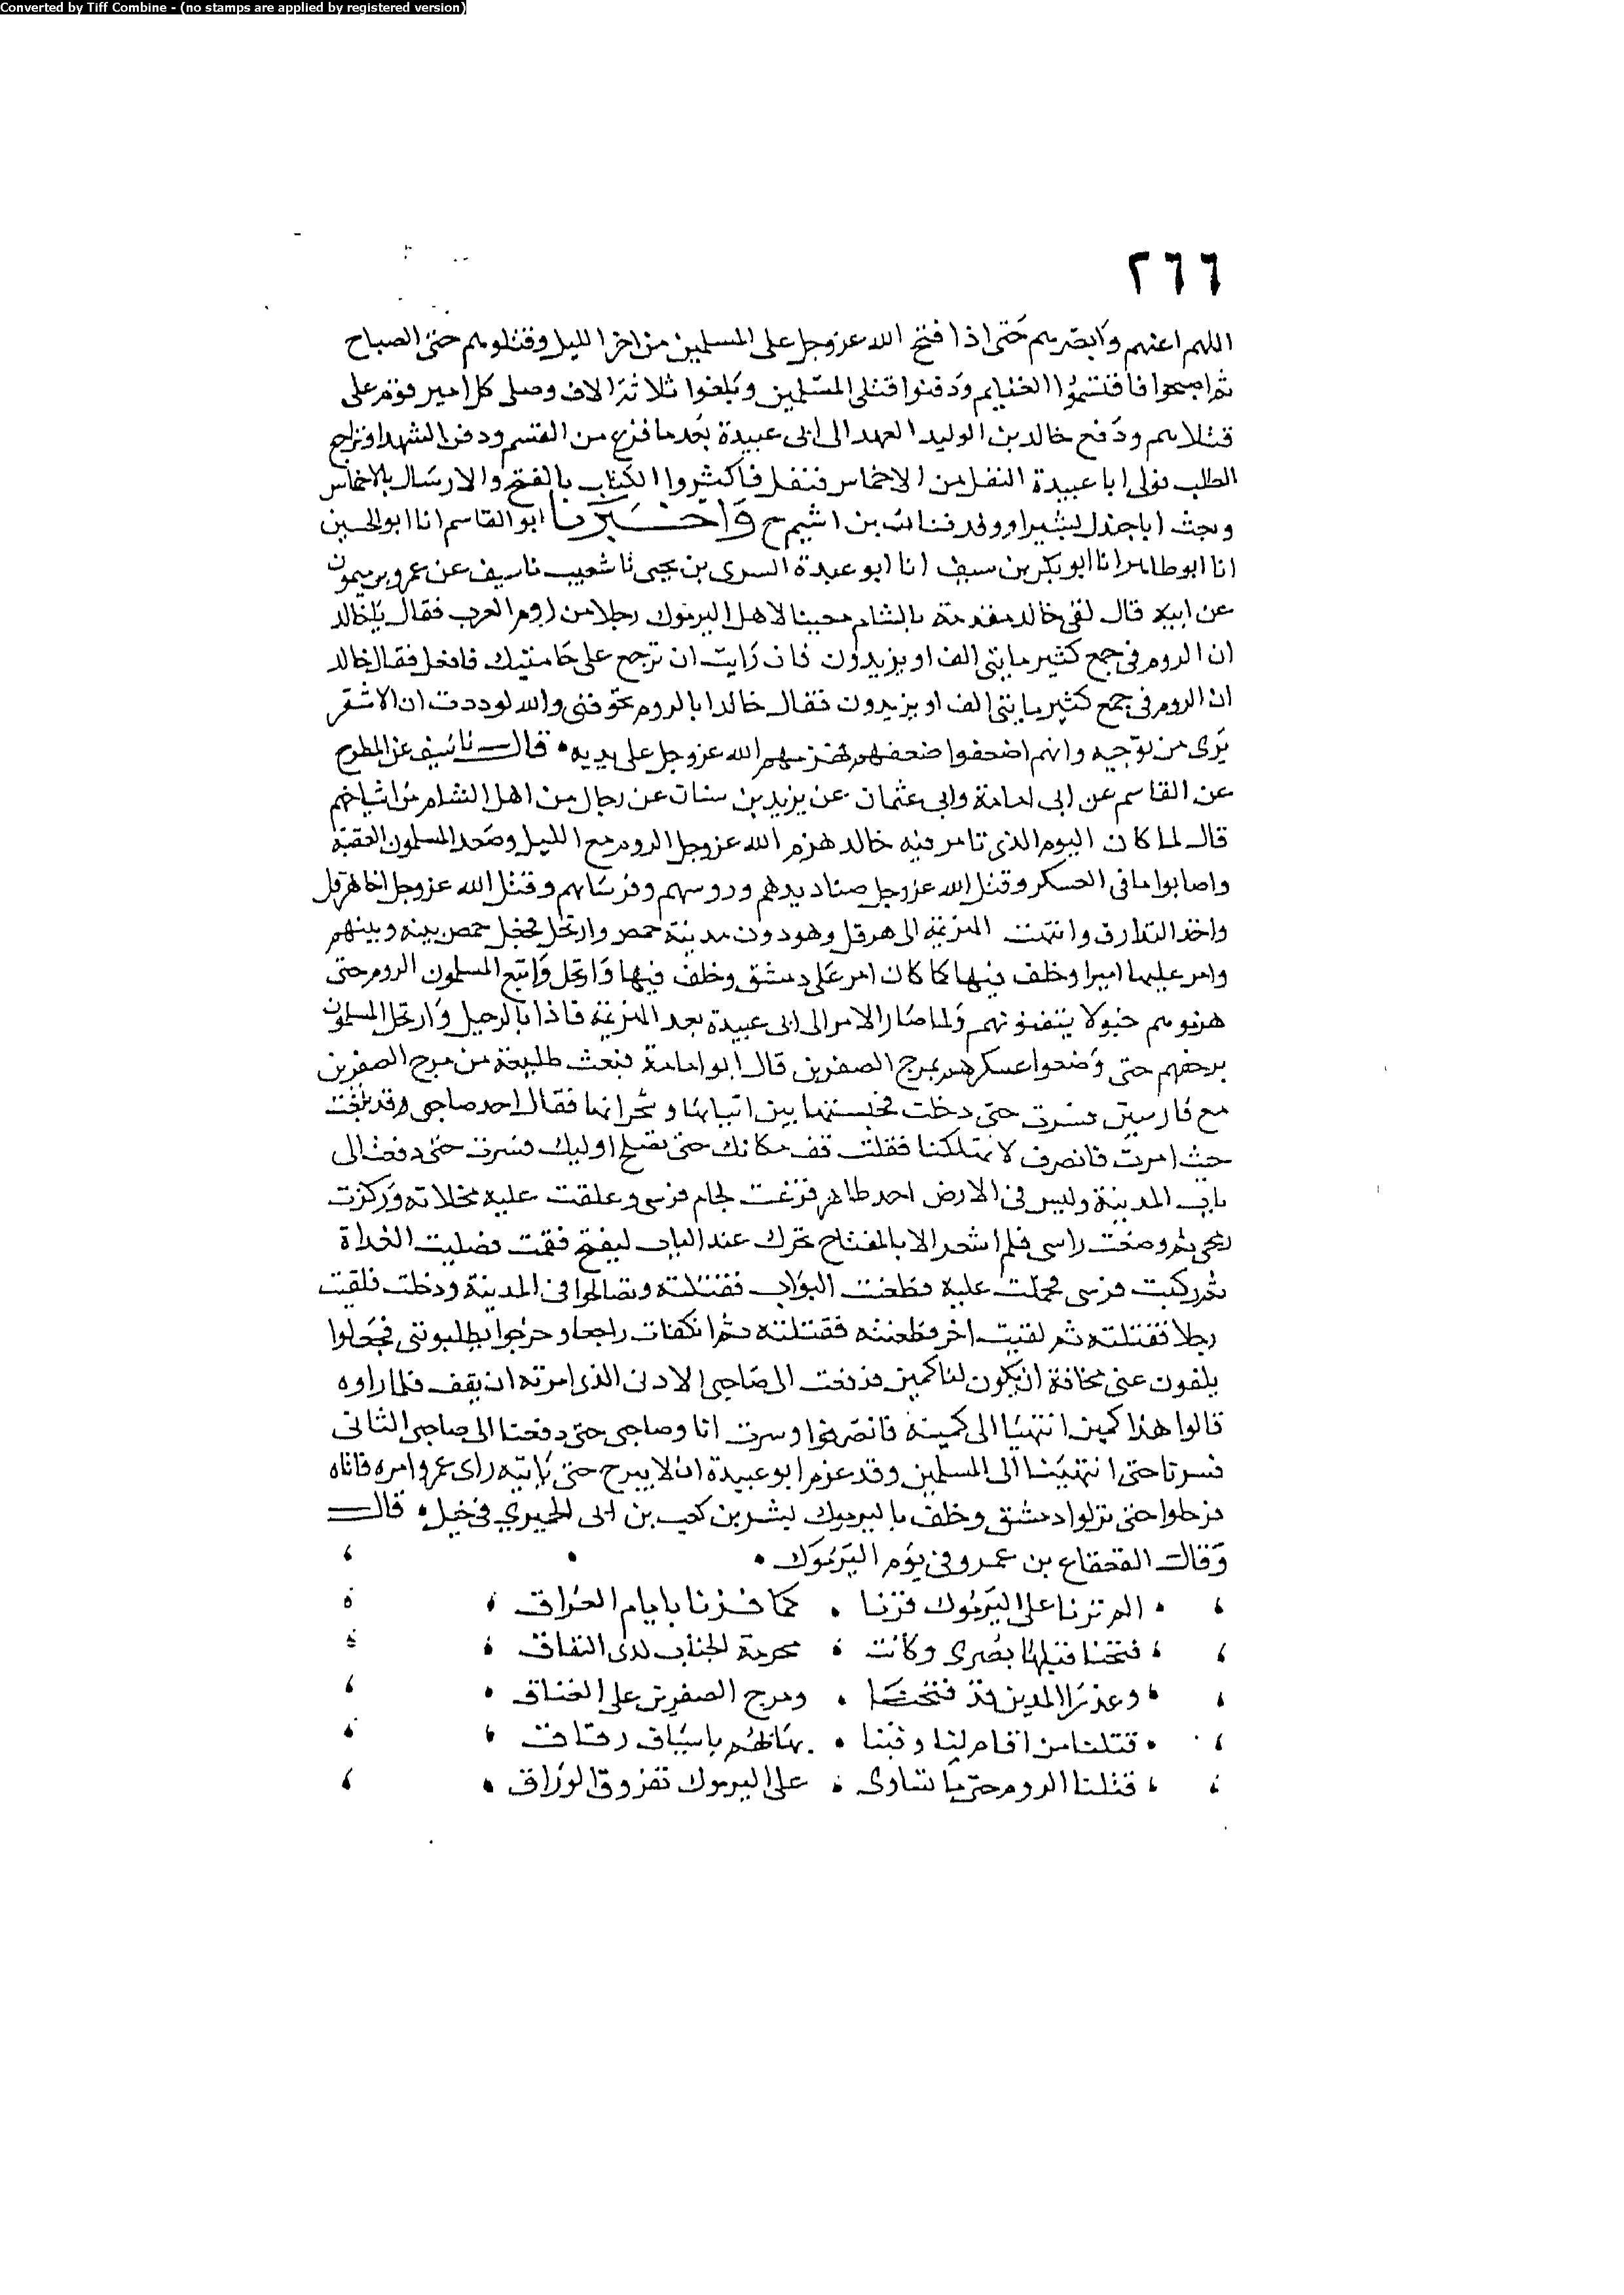 Converted by Tiff Combine - (no stamps are applied by registered version)
٢٦٦
اللهم اعنهم وابصرهم حتى اذا فتح الله عز وجل على المسلمين من اخر الليل وقتلوهم حتى الصباح
ثم اصبحوا فاقتسموا الغنايم ودفنوا قتلى المسلمين وبلغوا ثلاثة الاف وصلى كل امير قوم على
قتلاهم ودفع خالد بن الوليد العهد الى ابى عبيدة بعد ما فرغ من القسم ودفن الشهدا وتراجع
الطلب فولى ابا عبيدة النفل من الاخماس فنفل فاكثروا الكتاب بالفتح والارسال بالاخماس
وبعث ابا جندل بشيرا ووفد قتاث بن اشيم ح واخبرنا ابو القاسم انا ابو الحسين
انا ابو طاهر انا ابو بكر بن سيف انا ابو عبيدة السرى بن يحيى نا شعيب نا سيف عن عمرو بن ميمون
عن ابيه قال لقى خالد مقدمة بالشام مغيثا لاهل اليرموك رجلا من روم العرب فقال يا خالد
ان الروم فى جمع كثير مايتى الف او يزيدون فان رايت ان ترجع على حاميتك فافعل فقال خالد
ان الروم فى جمع كثير مايتى الف او يزيدون فقال خالد ابالروم تخوفنى والله لوددت ان الاشقر
يرى من توجيه وانهم اضعفوا ضعفهم فهزمهم الله عز وجل على يديه قال نا سيف عن المطرح
عن القاسم عن ابى امامة وابى عثمان عن يزيد بن سنان عن رجال من اهل الشام من اشياخهم
قال لما كان اليوم الذى تامر فيه خالد هزم الله عز وجل الروم مع الليل وصعد المسلمون العقبة
واصابوا ما فى العسكر وقتل الله عز وجل صناديدهم وروسهم وفرسانهم وقتل الله عز وجل اخا هرقل
واخذ التذارق وانتهت الهزيمة الى هرقل وهو دون مدينة حمص وارتحل فجعل حمص بينه وبينهم
وامر عليها اميرا وخلف فيها كما كان امر على دمشق وخلف فيها وارتحل واتبع المسلمون الروم حتى
هزموهم خيولا يثفنونهم ولما صار الامر الى ابى عبيدة بعد الهزيمة فاذا بالرحيل وارتحل المسلمون
برحفهم حتى وضعوا عسكرهم بمرج الصفرين قال ابو امامة فبعث طليعة من مرج الصفرين
مع فارسين فسرت حتى دخلت فجستها بين ابياتها وشجراتها فقال احد صاحبى قد بلغت
حيث امرت فانصرف لا تهلكنا فقلت قف مكانك حتى تصبح او اتيك فسرت حتى دفعت الى
باب المدينة وليس فى الارض احد ظاهر فنزعت لجام فرسى وعلقت عليه مخلاته وركزت
رمحى ثم وضعت راسى فلم اشعر الا بالمفتاح تحرك عند الباب ليفتح فقمت فصليت الغداة
ثم ركبت فرسى فحملت عليه فطعنت البواب فقتلته وتصالحوا فى المدينة ودخلت فلقيت
رجلا فقتلته ثم لقيت اخر فطعنته فقتلته ثم انكفات راجعا وخرجوا يطلبوننى فجعلوا
يلفون عنى مخافة ان يكون لنا كمين فدفعت الى صاحبى الادنى الذى امرته ان يقف فلما راوه
قالوا هذا كمين انتهينا الى كمينه فانصرفوا وسرت انا وصاحبى حتى دفعنا الى صاحبى الثانى
فسرنا حتى انتهينا الى المسلمين وقد عزم ابو عبيدة ان لا يبرح حتى ياتيه راى عمر وامره فاتاه
فرحلوا حتى نزلوا دمشق وخلف باليرموك بشر بن كعب بن ابى الحميري فى خيل قال
وقال القعقاع بن عمرو فى يوم اليرموك
الم ترنا على اليرموك فزنا كما فزنا بايام العراق
فتحنا قبلها بصرى وكانت محرمة الجناب لدى النفاق
وعذرا المدين قد فتحنا ومرج الصفرين على العتاق
قتلنا من اقام لنا وفينا نهابهم باسياف رقاق
قتلنا الروم حتى ما تساوى على اليرموك تفروق الوراق